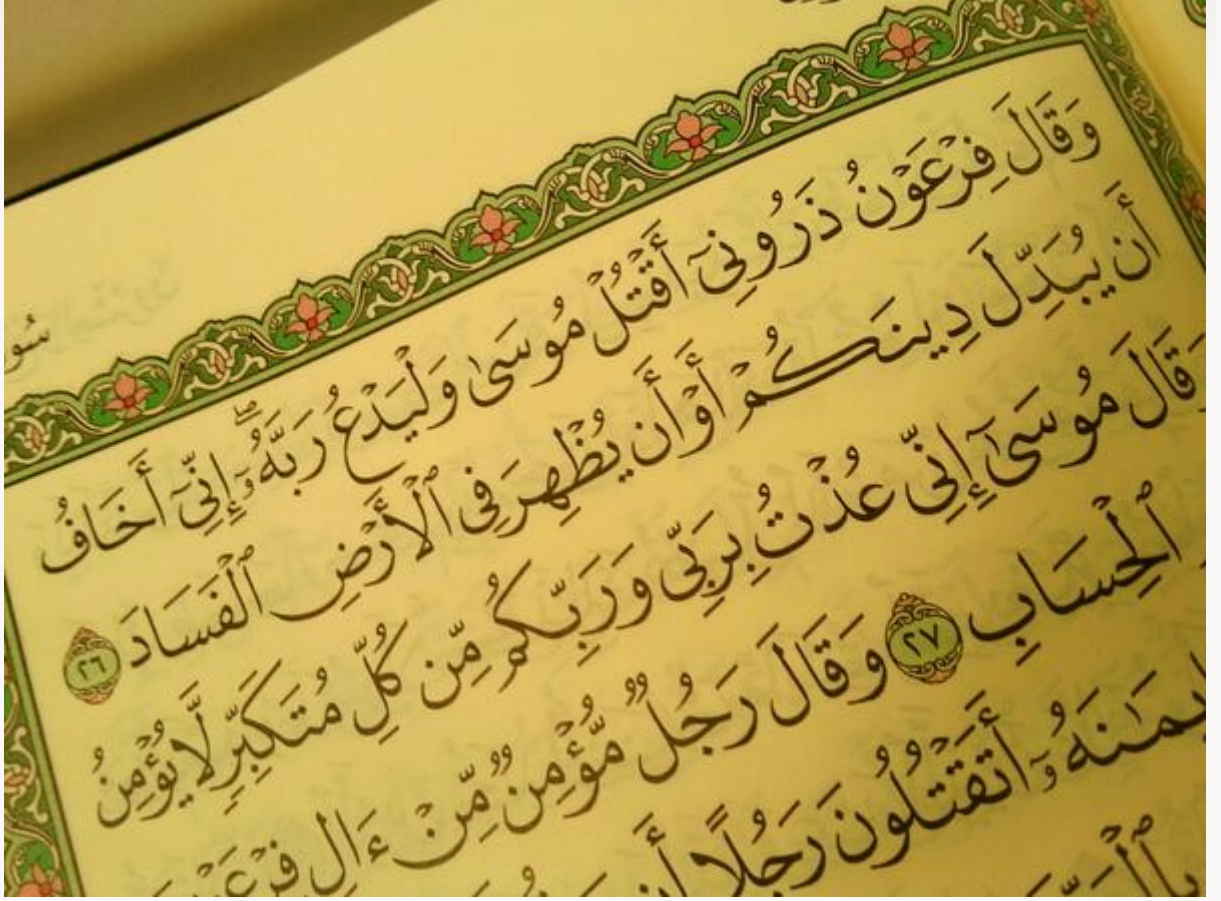 سُو
وَقَالَ فِرۡعَوۡنُ ذَرُونِيٓ أَقۡتُلۡ مُوسَىٰ وَلۡيَدۡعُ رَبَّهُۥٓۖ إِنِّيٓ أَخَافُ
أَن يُبَدِّلَ دِينَكُمۡ أَوۡ أَن يُظۡهِرَ فِي ٱلۡأَرۡضِ ٱلۡفَسَادَ ٢٦
وَقَالَ مُوسَىٰٓ إِنِّي عُذۡتُ بِرَبِّي وَرَبِّكُم مِّن كُلِّ مُتَكَبِّرٖ لَّا يُؤۡمِنُ
ٱلۡحِسَابِ ٢٧ وَقَالَ رَجُلٞ مُّؤۡمِنٞ مِّنۡ ءَالِ فِرۡعَوۡ
يمَٰنَهُۥٓ أَتَقۡتُلُونَ رَجُلًا أَن